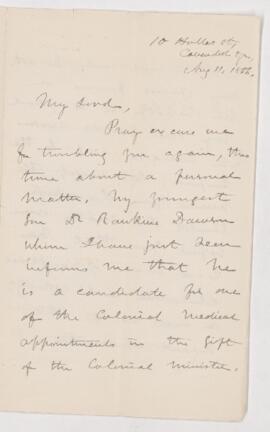 10 Holles St,
Cavendish Sqr,
Aug 11, 1886.
My Lord,
Pray excuse me
for troubling you again, this
time about a personal
matter. My youngest
Son Dr Rankine Dawson
whom I have just seen
informs me that he
is a candidate for one
of the Colonial Medical
appointments in the gift
of the Colonial Minister.